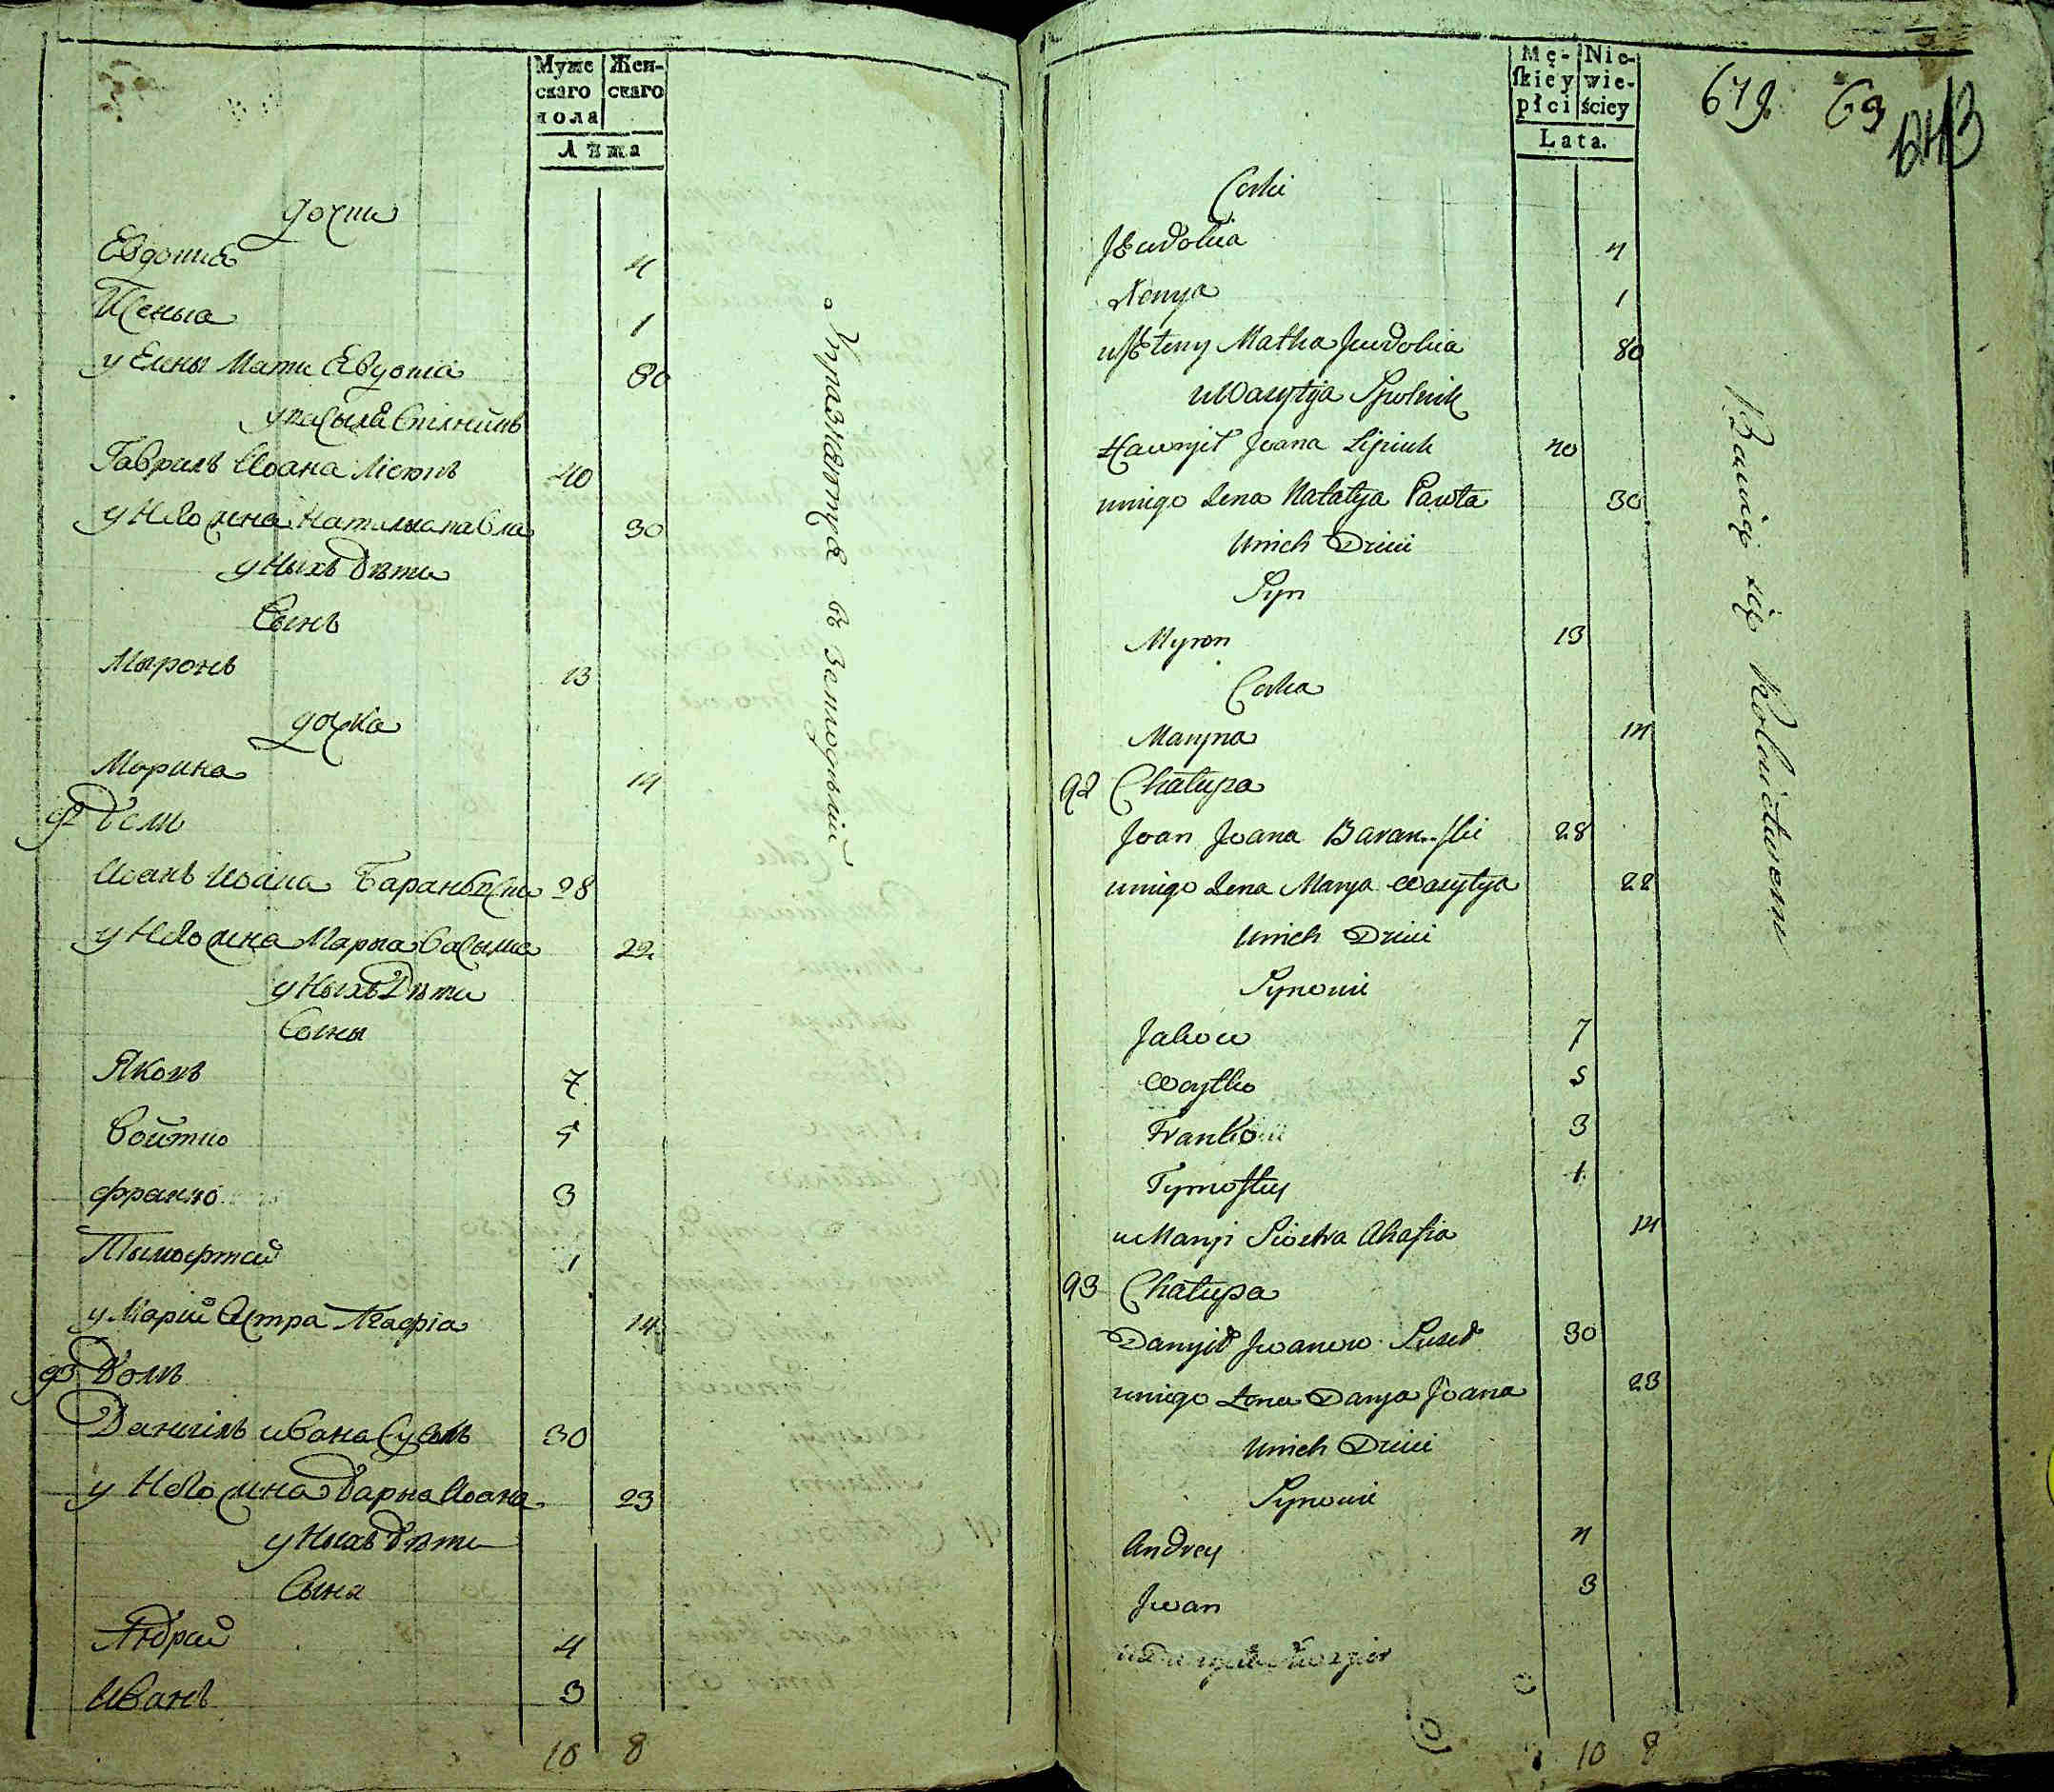 Муже
скаго
пола
Жен-
скаго
Лѣта
дочки
Евдокиа 4
Ксеныа 1
у Елены Мати Евдокіа 80
у василя Спілникъ
Гаврилъ Иоана 40
у Него жена Наталыа павла 30
у Ныхъ дѣти
Сынъ
Мыронъ 13
дочка
Марина 14
92 Домъ
Иоанъ Иоана 28
у Него жена Марыа Василиа 22
у Ныхъ Дѣти
Сыны
Яковъ 7
Войтко 5
Франко 3
Тымофтей 1
у Маріи Сестра Агафіа 14
93 Домъ
Даниілъ ивана Сусѣдъ 30
у Него жена Дарыа Иоана 23
у Ныхъ дѣти
Сына
Андрей 4
Иванъ 3
10 8
Упражняются въ земледѣліи
Mę-
skiey
płci
Nie-
wie-
ściey
Lata.
679. 69
Corki
Jewdokia 4
Xenya 1
u Heleny Matka Jewdokia 80
u Wasylya Spolnik
Hawryił Joana 40
uniego Żena Natalya Pawła 30
Unich Dzieci
Syn
Myron 13
Corka
Maryna 14
92 Chałupa
Joan Joana Baranski 28
uniego Żena Marya Wasylya 22
Unich Dzieci
Synowie
Jakow 7
Woytko 5
Franko 3
Tymoftey 1
u Maryi Siostra Ahafia 14
93 Chałupa
Danyił Jwanow Sused 30
uniego Żona Darya Joana 23
Unich Dzieci
Synowie
Andrey 4
Jwan 3
10 8
Bawią się Rolnictwem